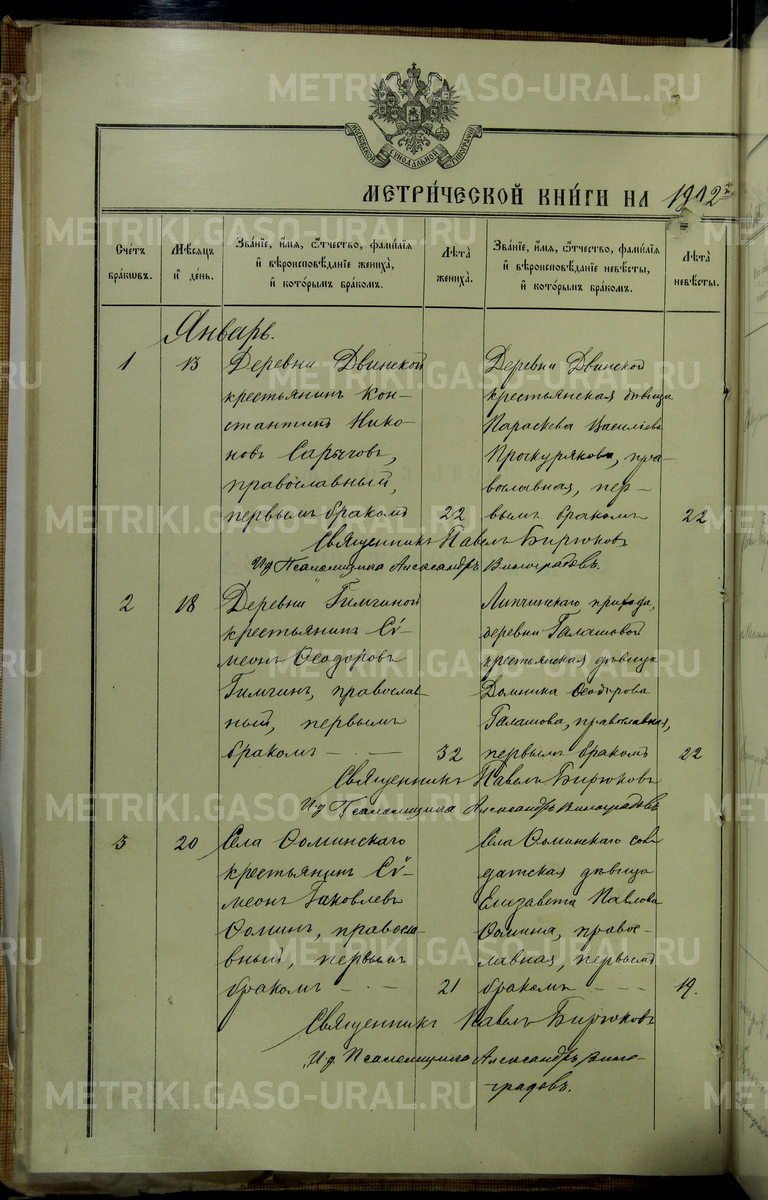 METRIKI.GASO-URAL.RU
МОСКОВСКОЙ СѴНОДАЛЬНОЙ ТИПОГРАФІИ
МЕТРИ́ЧЕСКОЙ КНИ́ГИ НА 1912
Сче́тъ бра́кωвъ.
Мѣ́сѧцъ и҆ де́нь.
Зва́нїе, и҆́мѧ, ѻ҆́тчество, фамѵ́лїѧ и҆ вѣроисповѣ́данїе жениха̀, и҆ кото́рымъ бра́комъ.
Лѣ́та жениха̀.
Зва́нїе, и҆́мѧ, ѻ҆́тчество, фамѵ́лїѧ и҆ вѣроисповѣ́данїе невѣ́сты, и҆ кото́рымъ бра́комъ.
Лѣ́та невѣ́сты.
Январь.
1
13
Деревни Двинской
крестьянинъ Кон-
стантинъ Нико-
новъ Сарычовъ,
православный,
первымъ бракомъ
22
Деревни Двинской
крестьянская дѣвица
Параскева Василіева
Проскурякова, пра-
вославная, пер-
вымъ бракомъ
22
Священникъ Павелъ Бирюковъ
И д Псаломщика Александръ Виноградовъ.
2
18
Деревни Гилгиной
крестьянинъ Сѵ-
меонъ Ѳеодоровъ
Гилгинъ, православ-
ный, первымъ
бракомъ - . -
32
Липчинскаго прихода,
деревни Галашовой
крестьянская дѣвица
Домника Ѳеодорова
Галашова, православная,
первымъ бракомъ
22
Священникъ Павелъ Бирюковъ
И д Псаломщика Александръ Виноградовъ
3
20
Села Ѳоминскаго
крестьянинъ Сѵ-
меонъ Іаковлевъ
Ѳоминъ, правосла-
вный, первымъ
бракомъ - . -
21
Села Ѳоминскаго сол-
датская дѣвица
Елизавета Павлова
Ѳомина, правос-
лавная, первымъ
бракомъ - - -
19.
Священникъ Павелъ Бирюковъ
И д. Псаломщика Александръ Вино-
градовъ.